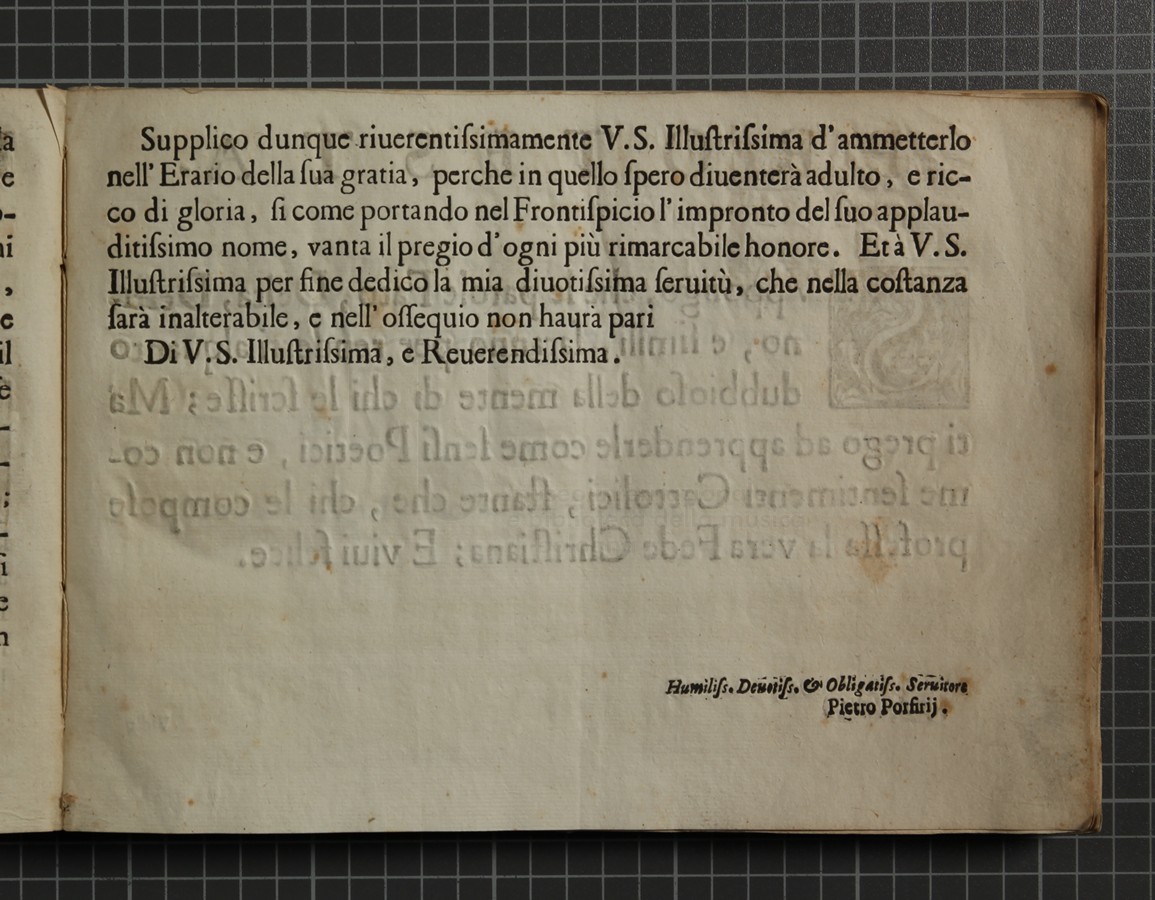 Supplico dunque riuerentiſsimamente V.S. Illuſtriſsima d'ammetterlo
nell'Erario della ſua gratia, perche in quello ſpero diuenterà adulto, e ric-
co di gloria, ſi come portando nel Frontiſpicio l'impronto del ſuo applau-
ditiſsimo nome, vanta il pregio d'ogni più rimarcabile honore. Et à V.S.
Illuſtriſsima per fine dedico la mia diuotiſsima ſeruitù, che nella coſtanza
ſarà inalterabile, e nell'oſſequio non haurà pari
Di V.S. Illuſtriſsima, e Reuerendiſsima.
Humiliſs. Deuotiſs. & Obligatiſs. Seruitore
Pietro Porfirij.